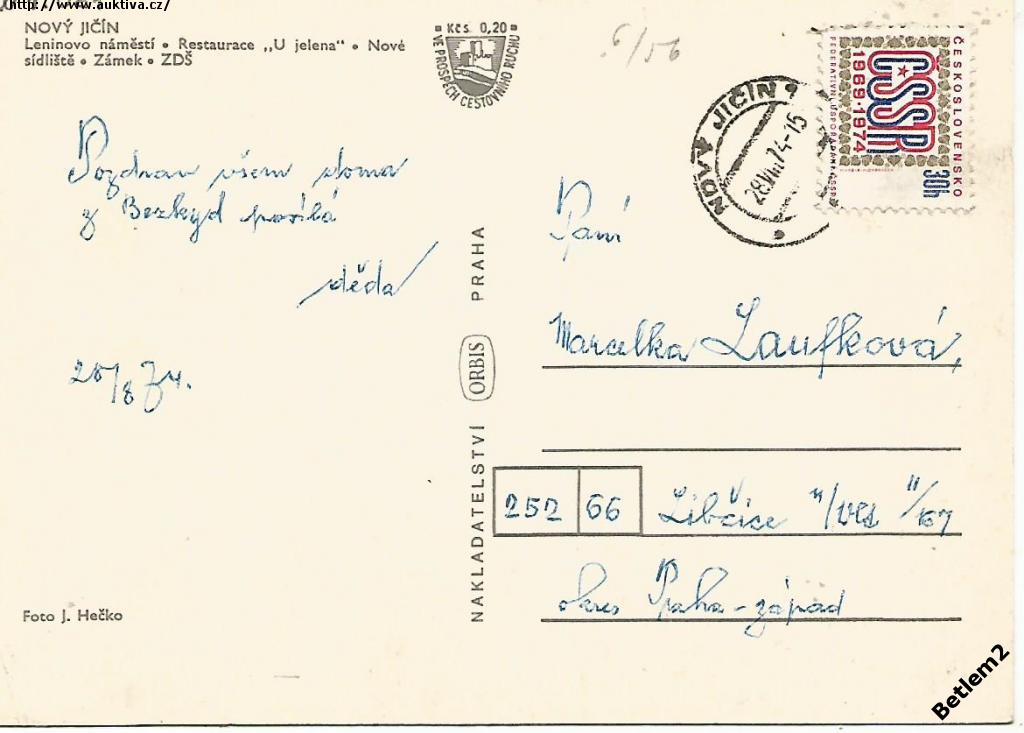 http://www.auktiva.cz/
NOVÝ JIČÍN
Leninovo náměstí • Restaurace „U jelena" • Nové
sídliště • Zámek • ZDŠ
Kčs 0,20
VE PROSPĚCH CESTOVNÍHO RUCHU
6/56
NOVÝ JIČÍN 1
28.VIII.74-15
ČESKOSLOVENSKO
ČSSR
1969·1974
FEDERATIVNÍ USPOŘÁDÁNÍ ČSSR
30h
Pozdrav všem doma
z Bezkyd posílá
děda
28/8 74.
Paní
Marcelka Laufková,
252 66 Libčice n/Vlt II/167
okres Praha-západ
NAKLADATELSTVÍ ORBIS PRAHA
Foto J. Hečko
Betlem2